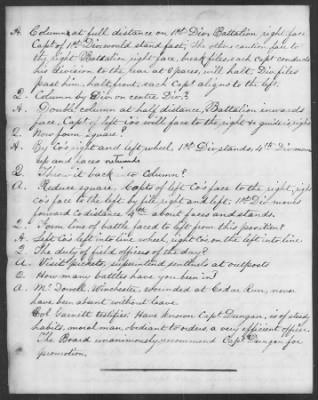 A. Column at full distance on 1st Div. Battalion right face
Capt of 1st Div. would stand fast, the others caution face to
the right Battalion right face, break files, each Capt conducts
his division to the rear 4 paces, will halt. Div. files
past him, halt, front, each Capt aligns to the left.
Q. Column by Div. on centre Div.?
A. Double column at half distance, Battalion inwards
face, Capt. of left Co's will face to the right & guide is right
Q. Now form Square?
A. By Co's right and left wheel, 1st Div. stands, 4th Div. moves
up and faces
Q. Throw it back into Column?
A. Reduce square. Capts of left Co's face to the right, right
co's face to the left by file right and left, 1st Div. moves
forward Co distance 4th about faces and stands.
Q. Form line of battle faced to left from this position?
A. Left Co's left into line wheel, right Co's, on the left into line.
Q. The duty of field officers of the day?
A. Visit pickets, superintend sentinels at outposts
Q. How many battles have you been in?
A. Mc Dowell, Winchester, wounded at Cedar Run, never
have been absent without leave
Col Garnett testifies: Have known Capt Dungan, is of steady
habits, moral man, obediant to orders, a very efficient officer.
The Board unanimously recommend Capt Dungan for
promotion.